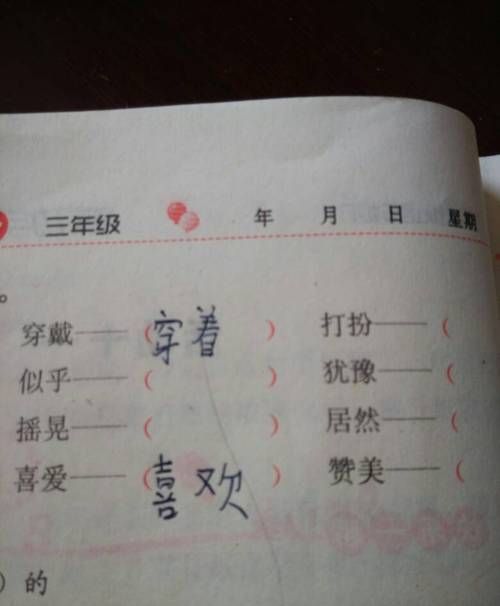 三年级 年 月 日 星期
。
穿戴——（穿着） 打扮——（
似乎——（ ） 犹豫——（
摇晃——（ ） 居然——（
喜爱——（喜欢） 赞美——（
）的